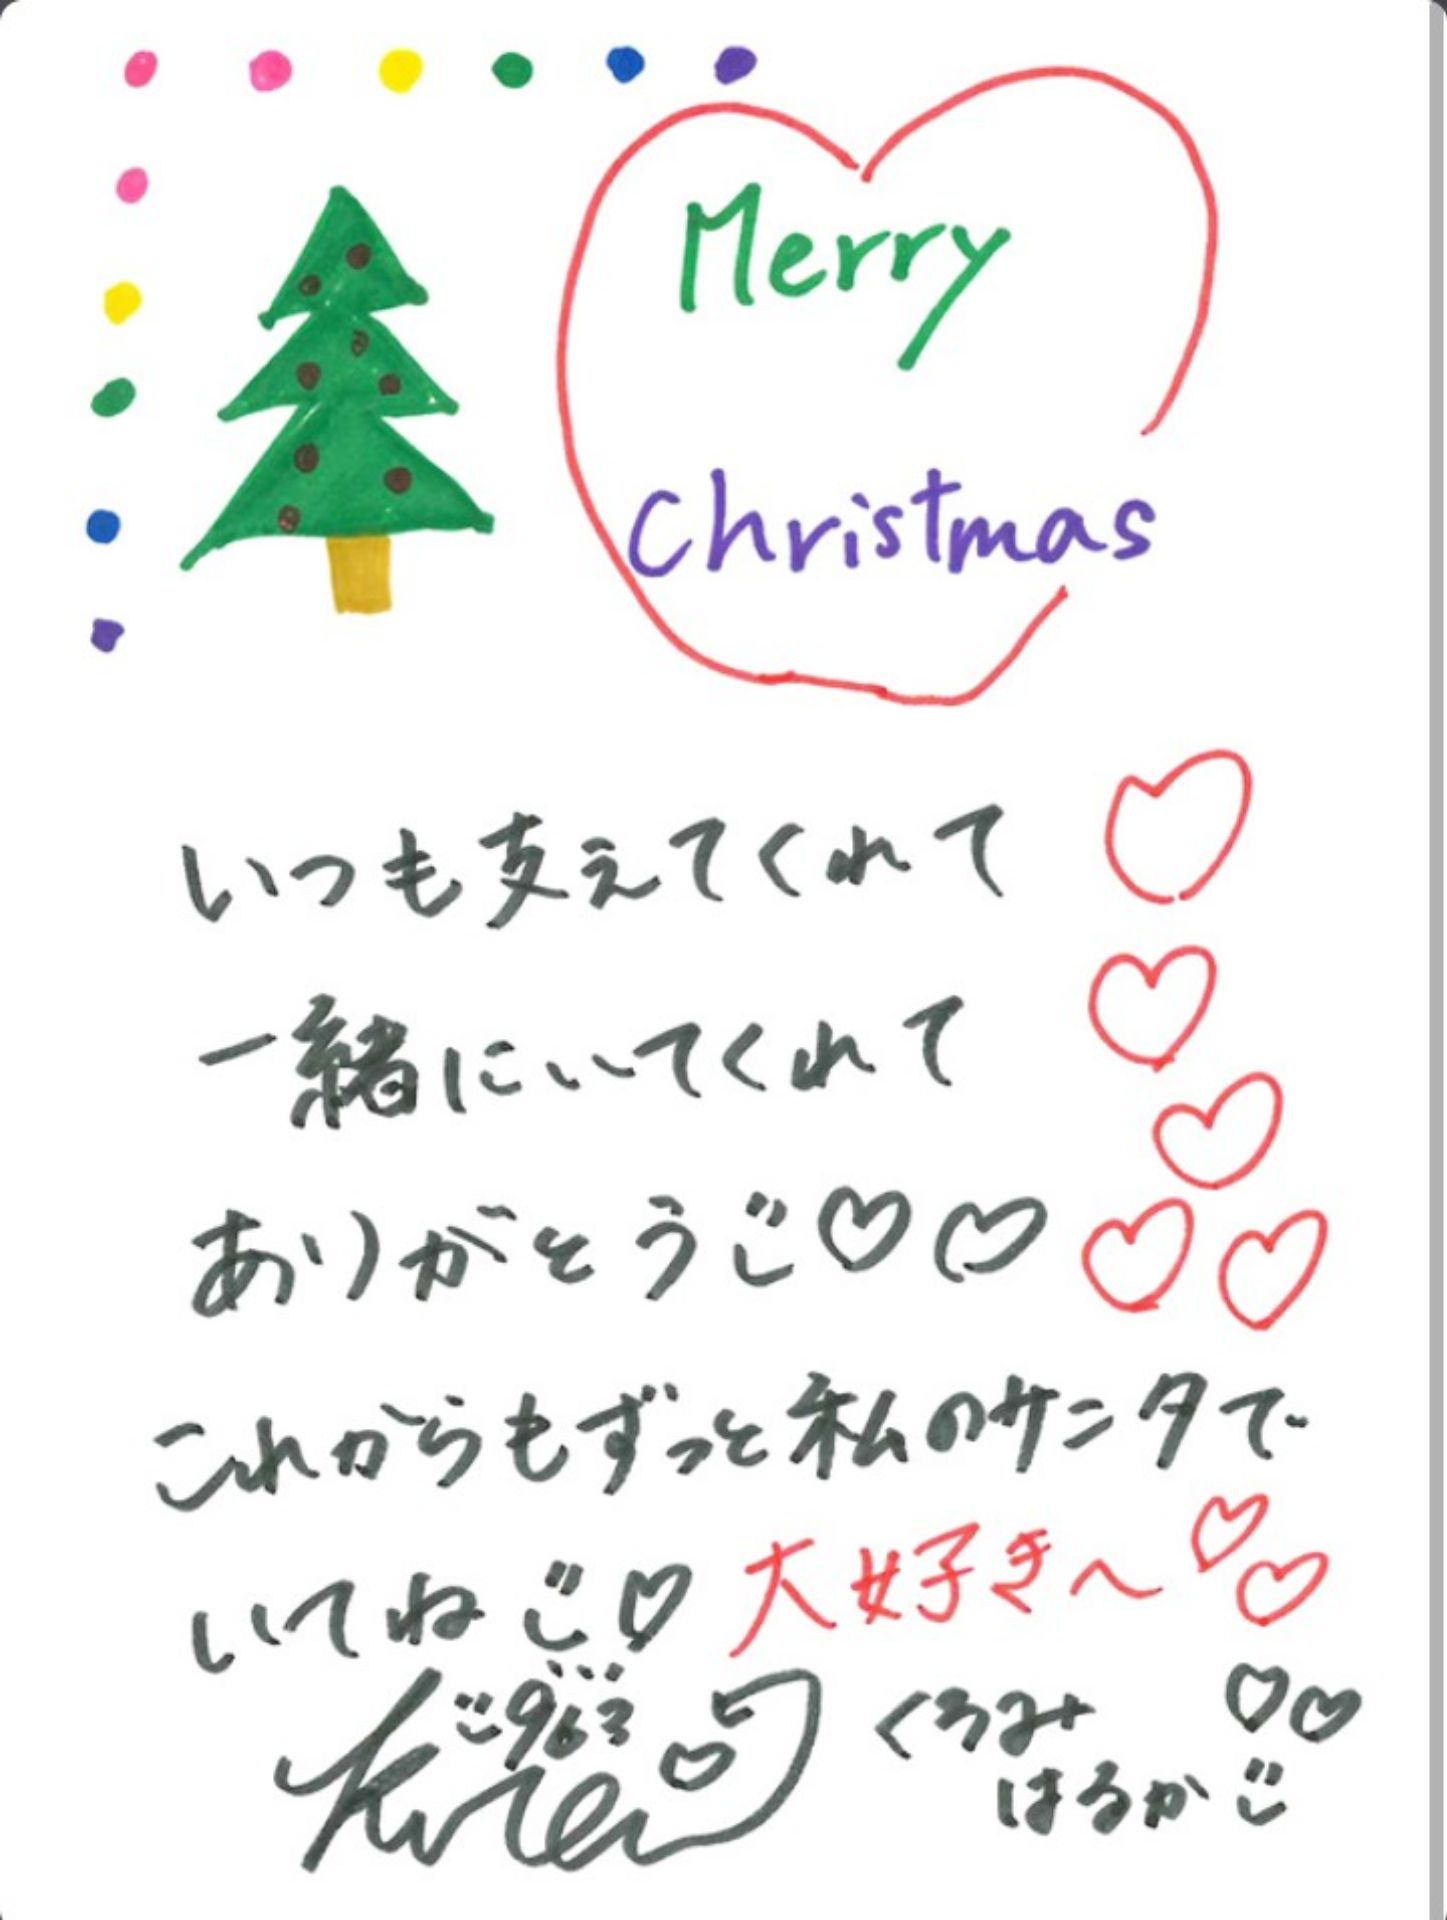 Merry
Christmas
いつも支えてくれて♡
一緒にいてくれて♡
ありがとう♡♡
これからもずっと私のサンタで
いてね♡ 大好き〜♡♡
963
くろみ♡♡
はるか